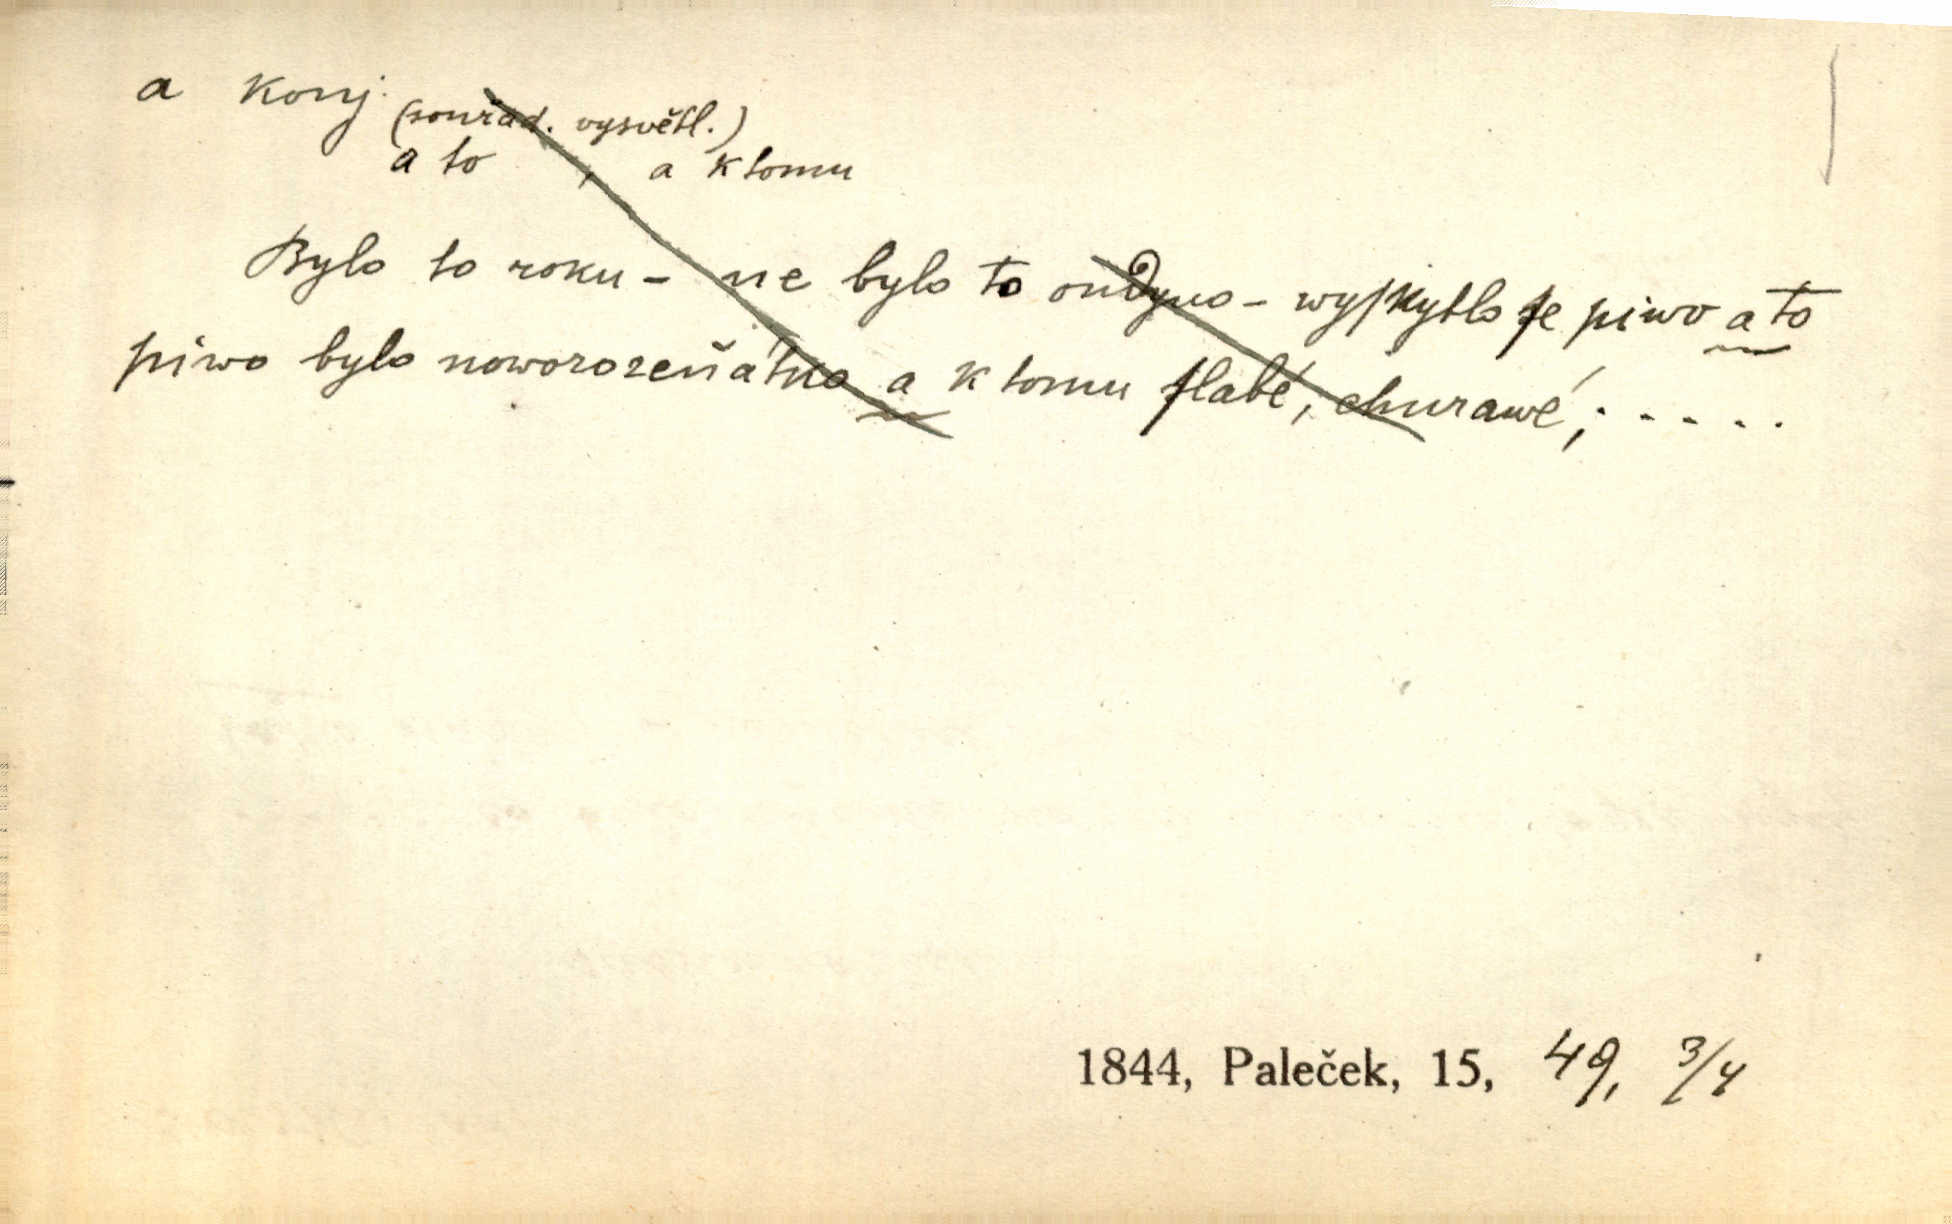 a konj.
(souřad. vysvětl.)
a to , a k tomu
Bylo to roku – ne bylo to ondyno – wyſkytlo ſe piwo a to
piwo bylo noworozeňátno a k tomu ſlabé, churawé; . . . .
1844, Paleček, 15, 49, 3/4